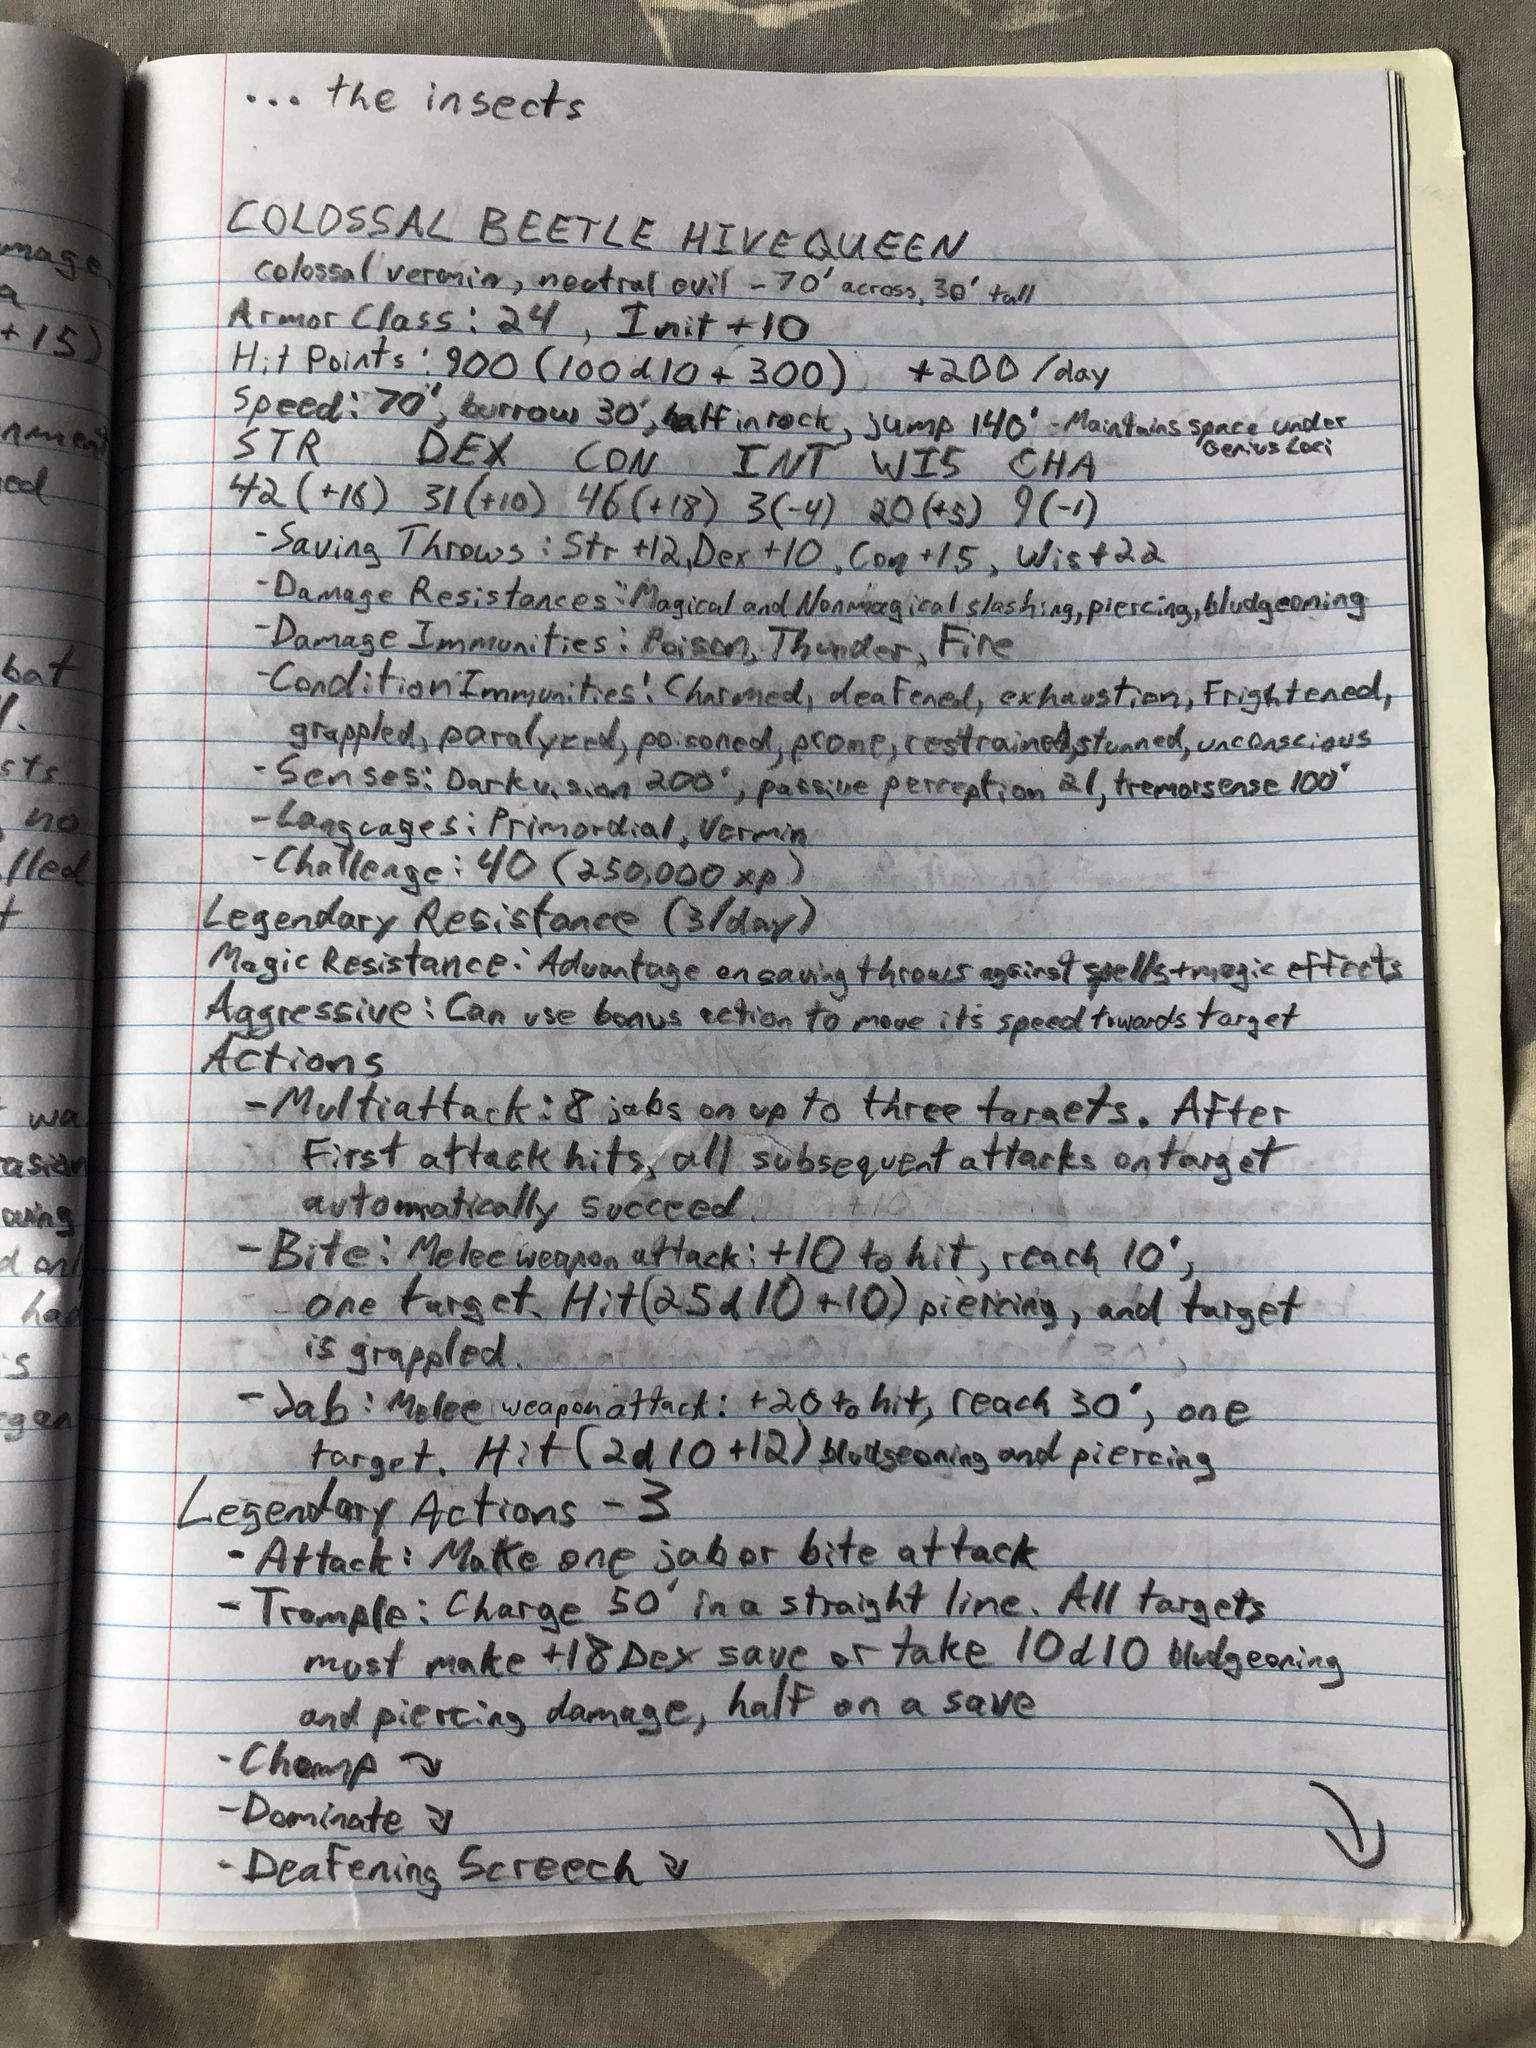 ... the insects
COLOSSAL BEETLE HIVEQUEEN
colossal vermin, neutral evil - 70' across, 30' tall
Armor Class: 24, Init +10
Hit Points: 900 (100d10 + 300) +200/day
Speed: 70', burrow 30', half in rock, jump 140' - Maintains space under
Genius Loci
STR DEX CON INT WIS CHA
42 (+16) 31 (+10) 46 (+18) 3 (-4) 20 (+5) 9 (-1)
- Saving Throws: Str +12, Dex +10, Con +15, Wis +22
- Damage Resistances: Magical and Nonmagical slashing, piercing, bludgeoning
- Damage Immunities: Poison, Thunder, Fire
- Condition Immunities: Charmed, deafened, exhaustion, Frightened,
grappled, paralyzed, poisoned, prone, restrained, stunned, unconscious
- Senses: Darkvision 200', passive perception 21, tremorsense 100'
- Languages: Primordial, Vermin
- Challenge: 40 (250,000 xp)
Legendary Resistance (3/day)
Magic Resistance: Advantage on saving throws against spells + magic effects
Aggressive: Can use bonus action to move its speed towards target
Actions
- Multiattack: 8 jabs on up to three targets. After
First attack hits, all subsequent attacks on target
automatically succeed.
- Bite: Melee weapon attack: +10 to hit, reach 10',
one target. Hit (25d10+10) piercing, and target
is grappled.
- Jab: Melee weapon attack: +20 to hit, reach 30', one
target. Hit (2d10+12) bludgeoning and piercing
Legendary Actions - 3
- Attack: Make one jab or bite attack
- Trample: Charge 50' in a straight line. All targets
must make +18 Dex save or take 10d10 bludgeoning
and piercing damage, half on a save
- Chomp ↘
- Dominate ↘
- Deafening Screech ↘